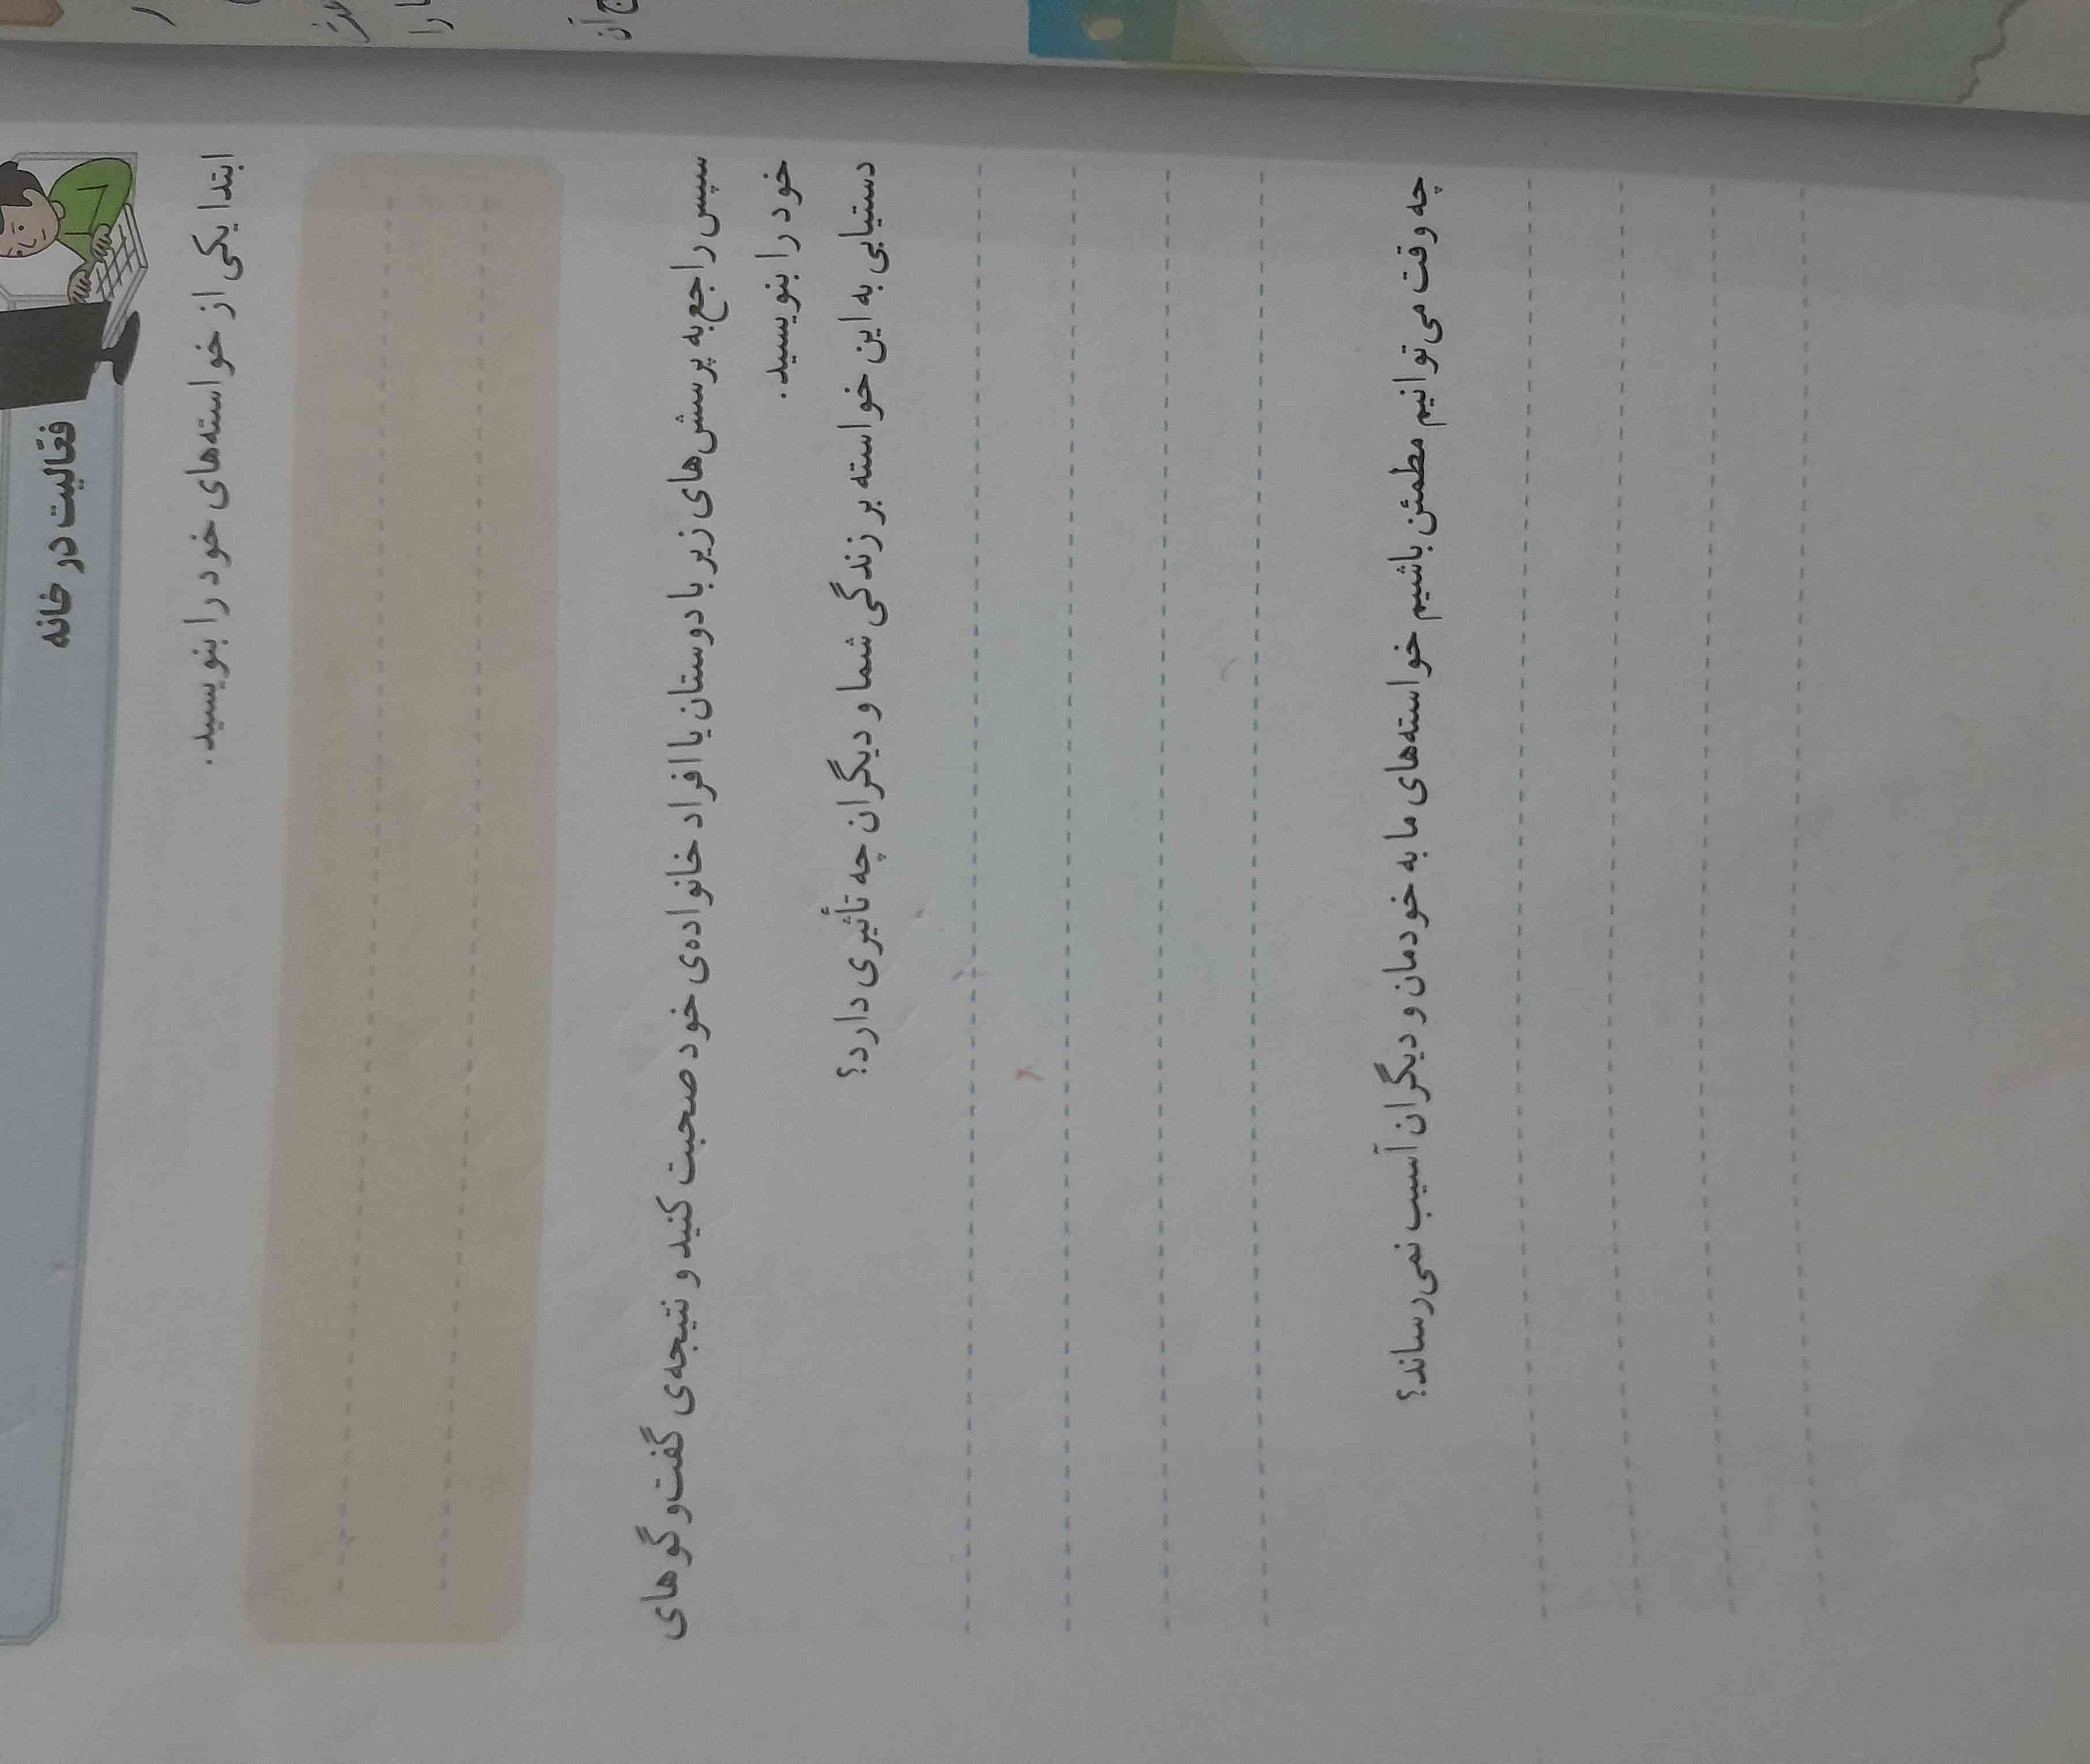 فعّالیت در خانه
ابتدا یکی از خواسته‌های خود را بنویسید.
سپس راجع به پرسش‌های زیر با دوستان یا افراد خانواده‌ی خود صحبت کنید و نتیجه‌ی گفت‌وگوهای
خود را بنویسید.
دستیابی به این خواسته بر زندگی شما و دیگران چه تأثیری دارد؟
چه وقت می‌توانیم مطمئن باشیم خواسته‌های ما به خودمان و دیگران آسیب نمی‌رساند؟